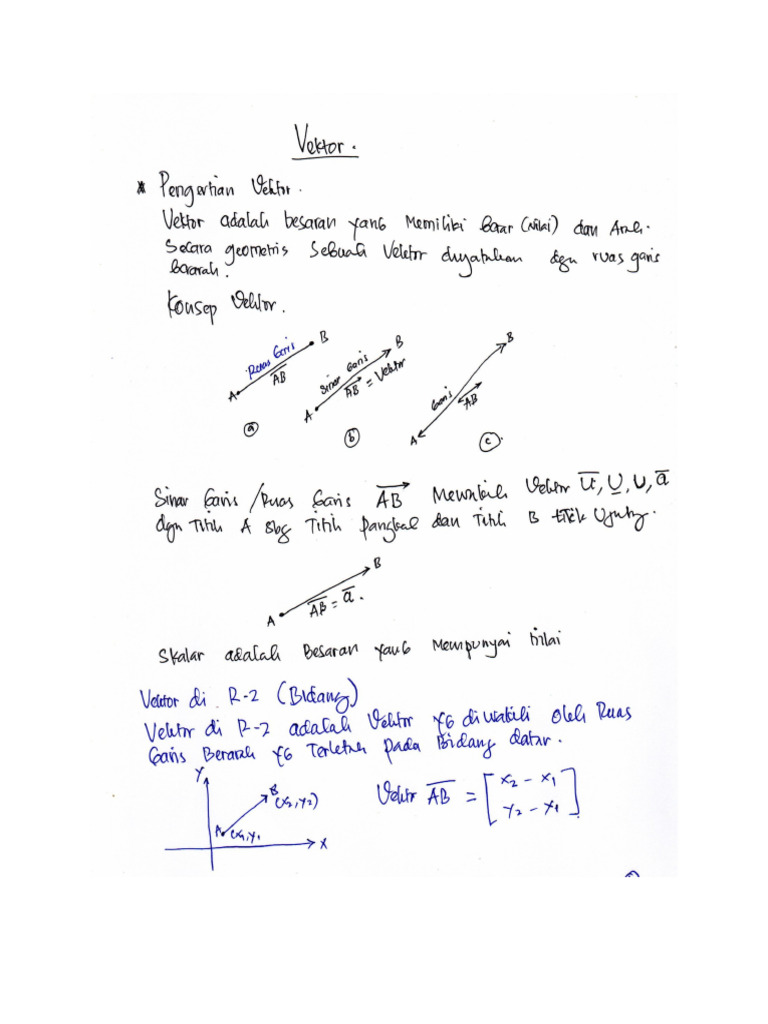 Vektor.
* Pengertian Vektor.
Vektor adalah besaran yang Memiliki besar (Nilai) dan Arah.
Secara geometris Sebuah Vektor dinyatakan dgn ruas garis
berarah.
Konsep Vektor.
A Ruas Garis AB B
A Sinar Garis AB = Vektor B
A Garis AB B
(a) (b) (c).
Sinar Garis / Ruas Garis AB Mewakili Vektor u, u, u, a
dgn Titik A sbg Titik pangkal dan Titik B titik Ujung.
A AB = a. B
Skalar adalah Besaran yang Mempunyai Nilai
Vektor di R-2 (Bidang)
Vektor di R-2 adalah Vektor yg diwakili oleh Ruas
Garis Berarah yg Terletak pada Bidang datar.
Y B (x2, y2) A (x1, y1 X
Vektor AB = [x2 - x1
y2 - y1]